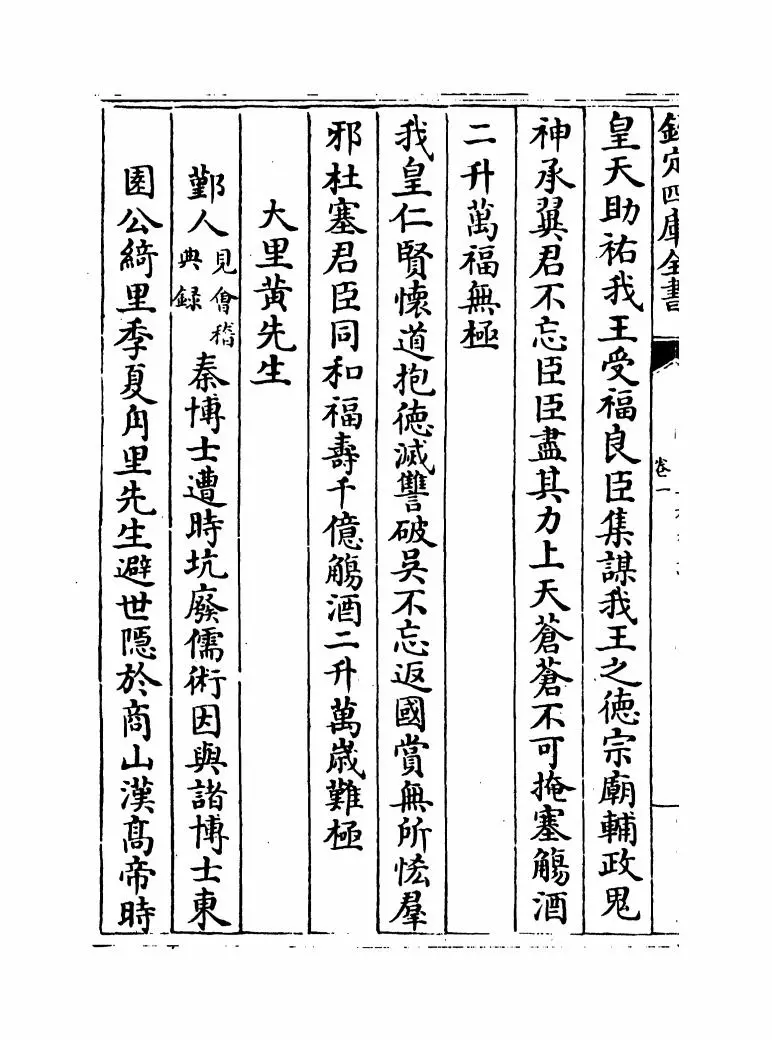 欽定四庫全書
卷一
皇天助祐我王受福良臣集謀我王之德宗廟輔政鬼
神承翼君不忘臣臣盡其力上天蒼蒼不可掩塞觴酒
二升萬福無極
我皇仁賢懷道抱德滅讐破吳不忘返國賞無所恡羣
邪杜塞君臣同和福壽千億觴酒二升萬歲難極
大里黄先生
鄞人見會稽典録秦博士遭時坑廢儒術因與諸博士東
園公綺里季夏甪里先生避世隠於商山漢髙帝時